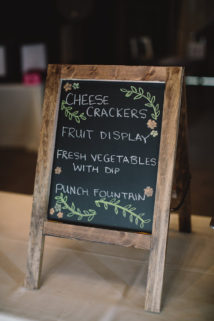 CHEESE
CRACKERS
FRUIT DISPLAY
FRESH VEGETABLES
WITH DIP
PUNCH FOUNTAIN